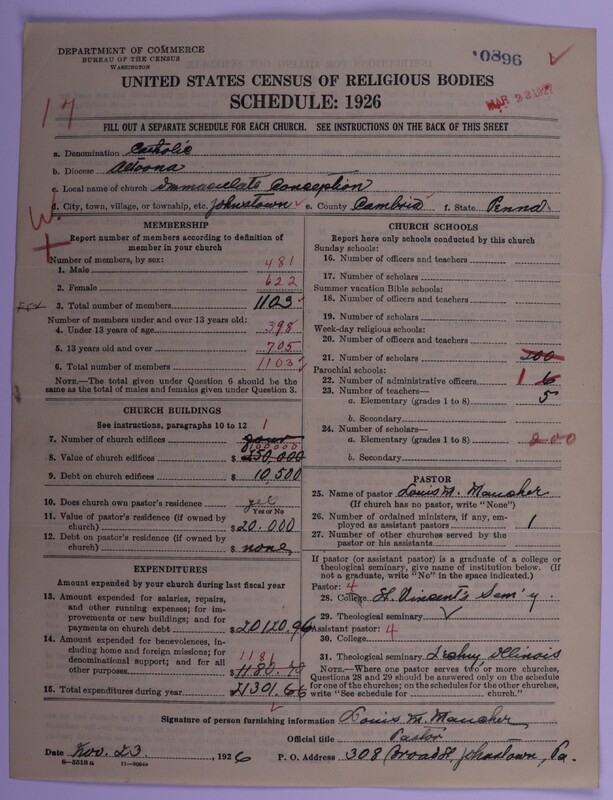 DEPARTMENT OF COMMERCE
BUREAU OF THE CENSUS
WASHINGTON
0896
UNITED STATES CENSUS OF RELIGIOUS BODIES
SCHEDULE: 1926
MAR 23 1927
17
FILL OUT A SEPARATE SCHEDULE FOR EACH CHURCH. SEE INSTRUCTIONS ON THE BACK OF THIS SHEET
a. Denomination Catholic
b. Diocese Altoona
c. Local name of church Immaculate Conception
d. City, town, village, or township, etc. Johnstown e. County Cambria f. State Penna.
MEMBERSHIP
Report number of members according to definition of member in your church
Number of members, by sex:
1. Male 481
2. Female 622
3. Total number of members 1103
Number of members under and over 13 years old:
4. Under 13 years of age 398
5. 13 years old and over 705
6. Total number of members 1103
NOTE.—The total given under Question 6 should be the same as the total of males and females given under Question 3.
CHURCH BUILDINGS
See instructions, paragraphs 10 to 12
7. Number of church edifices four 1
8. Value of church edifices $ 250,000 100000
9. Debt on church edifices $ 10,500
10. Does church own pastor's residence yes
Yes or No
11. Value of pastor's residence (if owned by church) $ 20.000
12. Debt on pastor's residence (if owned by church) $ none
EXPENDITURES
Amount expended by your church during last fiscal year
13. Amount expended for salaries, repairs, and other running expenses; for improvements or new buildings; and for payments on church debt $ 20120.96
14. Amount expended for benevolences, including home and foreign missions; for denominational support; and for all other purposes 1181 $ 1180.70
15. Total expenditures during year $ 21301.66
CHURCH SCHOOLS
Report here only schools conducted by this church
Sunday schools:
16. Number of officers and teachers
17. Number of scholars
Summer vacation Bible schools:
18. Number of officers and teachers
19. Number of scholars
Week-day religious schools:
20. Number of officers and teachers
21. Number of scholars 200
Parochial schools:
22. Number of administrative officers 1 6
23. Number of teachers—
a. Elementary (grades 1 to 8) 5
b. Secondary
24. Number of scholars—
a. Elementary (grades 1 to 8) 200
b. Secondary
PASTOR
25. Name of pastor Louis M. Maucher
(If church has no pastor, write "None")
26. Number of ordained ministers, if any, employed as assistant pastors 1
27. Number of other churches served by the pastor or his assistants
If pastor (or assistant pastor) is a graduate of a college or theological seminary, give name of institution below. (If not a graduate, write "No" in the space indicated.)
Pastor: 4
28. College St. Vincent's Sem'y.
29. Theological seminary
Assistant pastor: 4
30. College
31. Theological seminary Illinois
NOTE.—Where one pastor serves two or more churches, Questions 28 and 29 should be answered only on the schedule for one of the churches; on the schedules for the other churches, write "See schedule for church."
Signature of person furnishing information Louis M. Maucher
Official title Pastor
Date Nov. 23, 1926 P. O. Address 308 Broad St. Johnstown, Pa.